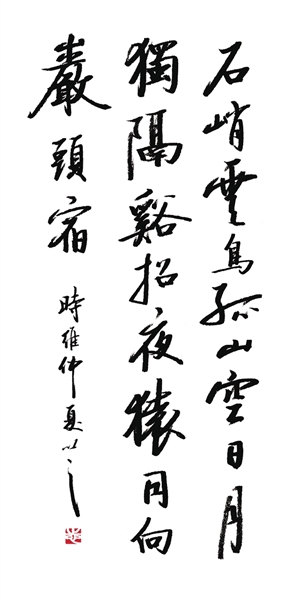 石峭雲鳥孤山空日月
獨隔谿招夜猿同向
巖頭宿
時維仲夏